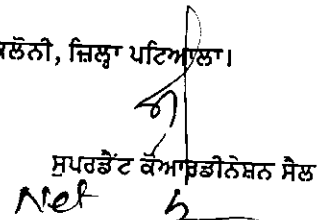 ਕਲੋਨੀ, ਜ਼ਿਲ੍ਹਾ ਪਟਿਆਲਾ।
ਸੁਪਰਡੈਂਟ ਕੋਆਰਡੀਨੇਸ਼ਨ ਸੈਲ